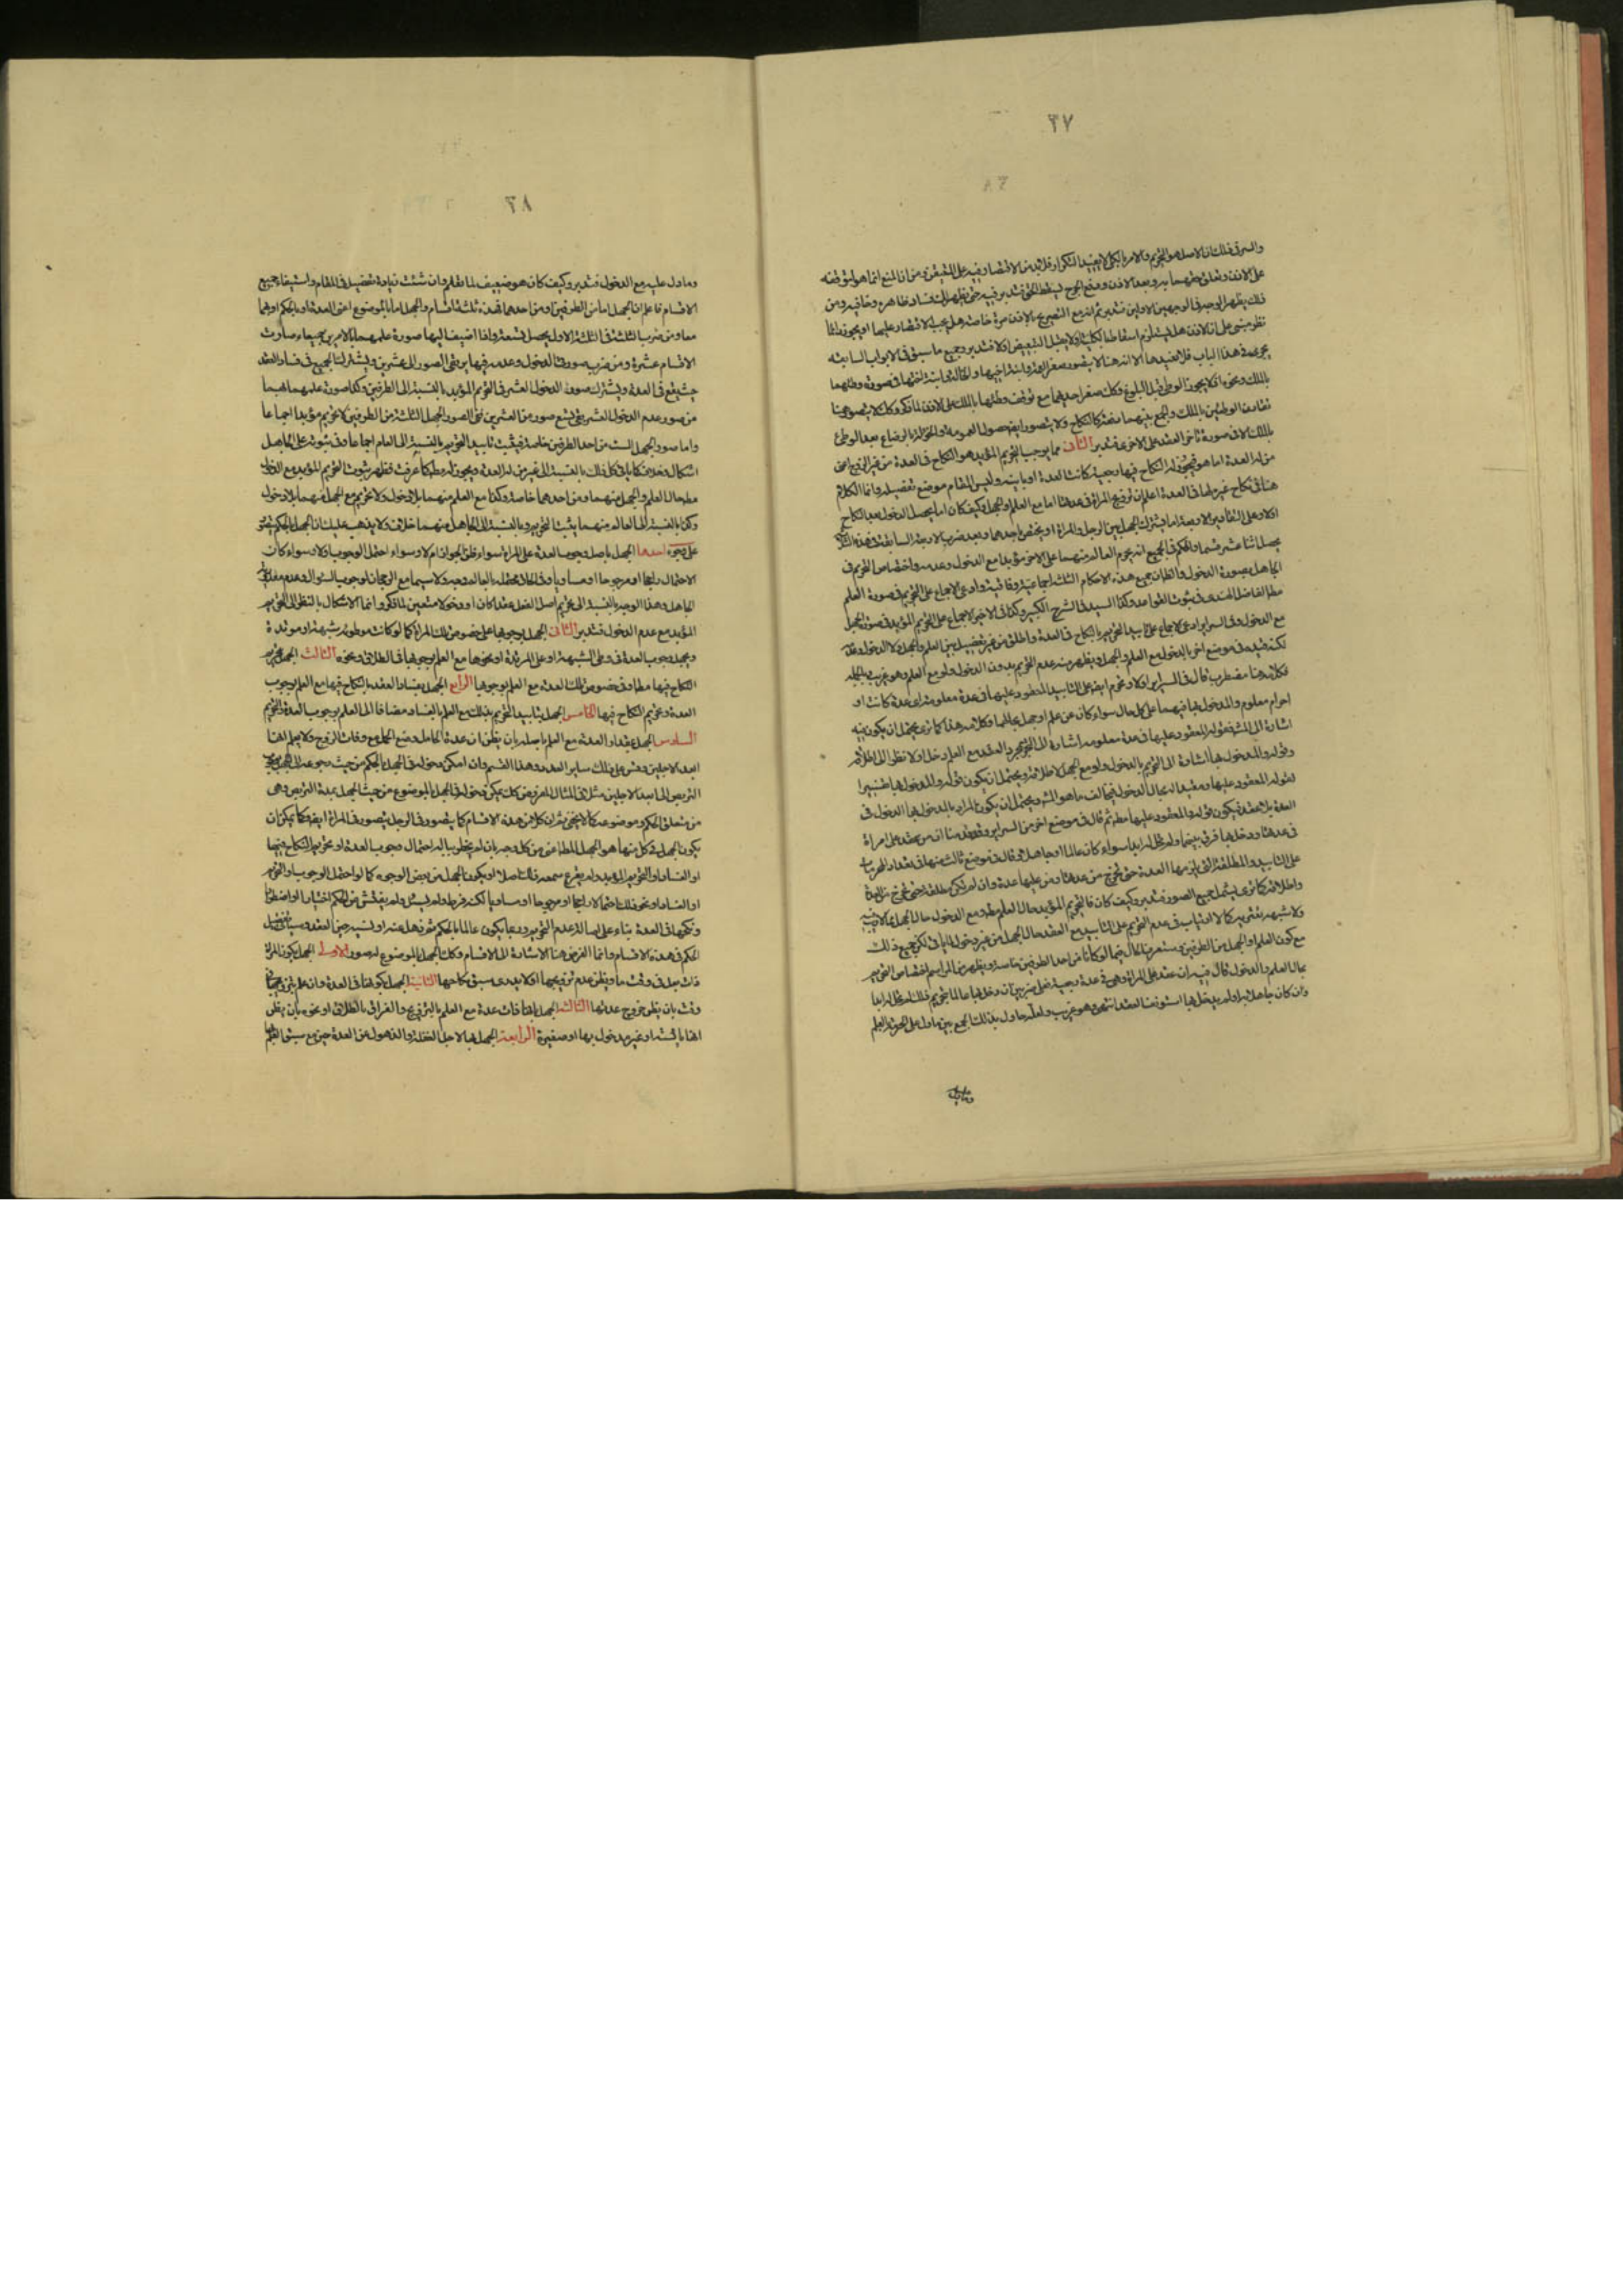 ٣٧
والسر في ذلك ان الاصل هو التحريم والامر بالكل لا يفيد التكرار فلا بد من الاقتصار فيه على المتيقن ومن ان المنع انما هو لتوقفه
على الاذن وبعد الاذن
ذلك يظهر الوجه في الوجهين الاولين
نظر مبنى على ان الاذن هل يستلزم اسقاط
يجرى في هذا الباب فلا نعيدها الا انه هنا لا يتصور صغر
بالملك ونحوه اذ لا يجوز الوطى قبل البلوغ وكذلك صغر احديهما مع توقف وطئها بالملك على الاذن لما ذكر وكذلك لا يتصور هنا
تقارن الوطئين بالملك والجمع بينهما
بالملك الا في صورة تأخر العقد على الاخرى فتدبر الثانى مما يوجب التحريم المؤبد هو النكاح في العدة من غير الزوج الذى
من له العدة اما هو فيجوز له النكاح فيها رجعية كانت العدة او باينة وليس المقام موضع تفصيله وانما الكلام
هنا في نكاح غير ما لها في العدة اعلم ان تزويج المرأة في عدتها اما مع العلم او الجهل وكيف كان اما يحصل الدخول بعد النكاح
او لا وعلى التقادير الاربعة اما يشترك الجهل بين الرجل والمرأة او يختص باحدهما وبعد ضرب الاربعة السابقة في هذه الثلاثة
يحصل اثنا عشر قسما والحكم في الجميع انه يحرم العالم منهما على الاخر مؤبدا مع الدخول وعدمه واختصاص التحريم في
الجاهل بصورة الدخول والظاهر ان جميع هذه الاحكام الثلثة اجماعية وفاقية وادعى الاجماع على التحريم في صورة العلم
مطلقا الفاضل الهندى في شرح القواعد وكذا السيد في الشرح الكبير وكذا في الاخير الاجماع على التحريم المؤبد في صورة الجهل
مع الدخول وفي السراير ادعى الاجماع على تأبيد التحريم بالنكاح في العدة واطلق من غير تفصيل بين العلم والجهل ولا الدخول وعدمه
لكنه قيده في موضع اخر بالدخول مع العلم والجهل ويظهر منه عدم التحريم بدون الدخول ولو مع العلم وهو غريب وبالجملة
فكلامه هنا مضطرب قال في السراير اولا وتحرم ايضا على التأبيد المعقود عليها في عدة معلومة اى عدة كانت او
احرام معلوم والمدخول بها فيهما على كل حال سواء كان عن علم او جهل بحالها وكلامه هذا كما ترى يحتمل ان يكون فيه
اشارة الى المشهور فقوله المعقود عليها في عدة معلومة اشارة الى التحريم بمجرد العقد مع العلم دخل او لا نظرا الى اطلاقه
وقوله والمدخول بها اشارة الى التحريم بالدخول ولو مع الجهل لاطلاقه ويحتمل ان يكون قوله والمدخول بها تفسيرا
لقوله المعقود عليها ومقيدا له بحال الدخول فيخالف ما هو المشهور ويحتمل ان يكون المراد بالمدخول بها الدخول في
العدة بلا عقد فيكون قوله المعقود عليها مط ثم قال في موضع اخر من السراير وقد قدمنا ان من عقد على امرأة
في عدتها ودخل بها فرق بينهما ولم تحل له ابدا سواء كان عالما او جاهلا ثم قال في موضع ثالث منها في تعداد المحرمات
على التأبيد والمطلقة التى يلزمها العدة حتى تخرج من عدتها ومن عليها عدة وان لم تكن مطلقة حتى تخرج من العدة
واطلاقه كما ترى يشمل جميع الصور فتدبر وكيف كان فالتحريم المؤبد حال العلم مط ومع الدخول حال الجهل مما لا ريب فيه
ولا شبهة تعتريه كما لا ارتياب في عدم التحريم على التأبيد مع العقد حال الجهل من غير دخول لما يأتى لكن جميع ذلك
مع كون العلم او الجهل من الطرفين وستعرف الحال فيما لو كانا من احد الطرفين خاصة ويظهر من المراسم اختصاص التحريم
بحال العلم والدخول قال فيه ان عقد على امرأة وهى في عدة رجعية فعلى ضربين ان دخل بها عالما بتحريم ذلك لم تحل له ابدا
وان كان جاهلا به او لم يدخل بها استونف العقد انتهى وهو غريب ولعله حاول بذلك الجمع بين ما دل على الحرمة بالعلم
وما دل
٣٨
وما دل عليه مع الدخول فتدبر وكيف كان هو ضعيف لما تقدم وان شئت زيادة تفصيل في المقام واستيفاء جميع
الاقسام فاعلم ان الجهل اما من الطرفين او من احدهما فهذه ثلثة اقسام والجهل اما بالموضوع اعنى العدة او بالحكم او بهما
معا ومن ضرب الثلثة في الثلثة الاول يحصل تسعة واذا اضيف اليها صورة علمهما بالامرين جميعا صارت
الاقسام عشرة ومن ضربه صورتى الدخول وعدمه فيها يرتقى الصور الى عشرين ويشترك الجميع في فساد العقد
حيث يقع في العدة ويشترك صور الدخول العشر في التحريم المؤبد بالنسبة الى الطرفين وكذا صورة علمهما بهما
من صور عدم الدخول العشر بقى تسع صور من العشرين ففى الصور الجهل الثلثة من الطرفين لا تحريم مؤبدا اجماعا
واما صور الجهل الست من احد الطرفين خاصة فيثبت تأبيد التحريم بالنسبة الى العالم اجماعا وفي ثبوته على الجاهل
اشكال وخلاف كما يأتى كل ذلك بالنسبة الى غير من له العدة ويجوز له وطئها كما عرفت فظهر ثبوت التحريم المؤبد مع الدخول
مط حال العلم والجهل منهما ومن احدهما خاصة وكذا مع العلم منهما بلا دخول ولا تحريم مع الجهل منهما بلا دخول
وكذا بالنسبة الى العالم منهما يثبت التحريم وبالنسبة الى الجاهل منهما خلاف ولا يذهب عليك ان الجهل بالحكم يتصور
على وجوه احدها الجهل باصل وجوب العدة على المرأة سواء ظن الجواز ام لا وسواء احتمل الوجوب او لا وسواء كان
الاحتمال راجحا او مرجوحا او مساويا وفي الحاق محتمله بالعالم وجه ولا سيما مع الرجحان لوجوب السؤال وعدم معذورية
الجاهل وهذا الوجه بالنسبة الى تحريم اصل الفعل عقدا كان او دخولا متعين لما ذكر وانما الاشكال بالنظر الى التحريم
المؤبد مع عدم الدخول فتدبر الثانى الجهل بوجوبها على خصوص تلك المرأة كما لو كانت موطوءة بشبهة او مرتدة
ويجهل وجوب العدة في وطى الشبهة او على المرتدة او نحوها مع العلم بوجوبها في الطلاق ونحوه الثالث الجهل بتحريم
النكاح فيها مط او في خصوص تلك العدة مع العلم بوجوبها الرابع الجهل بفساد العقد بالنكاح فيها مع العلم بوجوب
العدة وتحريم النكاح فيها الخامس الجهل بتأبيد التحريم بذلك مع العلم بالفساد مضافا الى العلم بوجوب العدة والتحريم
السادس الجهل بمقدار العدة مع العلم باصله بان يظن ان عدة الحامل وضع الحمل مع وفات الزوج ولا يعلم انها
ابعد الاجلين وقس على ذلك ساير العدد وهذا القسم وان امكن دخوله في الجهل بالحكم من حيث رجوعه الى الجهل بوجوب
التربص الى ابعد الاجلين مثلا في المثال المفروض كذلك يمكن دخوله في الجهل بالموضوع من حيث الجهل بمدة التربص وهى
من متعلق الحكم وموضوعه كما لا يخفى ثم ان كلا من هذه الاقسام كما يتصور في الرجل يتصور في المرأة ايضا وكما يمكن ان
يكون الجهل في كل منها هو الجهل المطلق اعنى من كل وجه بان لم يخطر بباله احتمال وجوب العدة او تحريم النكاح فيها
او الفساد او التحريم المؤبد ولم يقرع سمعه ذلك اصلا او يكون الجهل من بعض الوجوه كما لو احتمل الوجوب او التحريم
او الفساد او نحو ذلك احتمالا راجحا او مرجوحا او مساويا لكنه فرط ولم يسئل ولم يفتش عن الحكم اختيارا او اضطرارا
ونكحها في العدة بناء على اصالة عدم التحريم وربما يكون عالما بالحكم ثم ذهل عنه او نسيه حين العقد وسيأتى تفصيل
الحكم في هذه الاقسام وانما الغرض هنا الاشارة الى الاقسام وكذلك الجهل بالموضوع له صور الاولى الجهل بكون المرأة
ذات بعل في وقت ما ويظن عدم تزويجها او لا يدرى سبق نكاحها الثانية الجهل بكونها في العدة وان علم بتزويجها في
وقت بان يظن خروج عدتها الثالثة الجهل بانها ذات عدة مع العلم بالتزويج والفراق بالطلاق او نحوه بان يظن
انها يائسة او غير مدخول بها او صغيرة الرابعة الجهل بها لاجل الغفلة والذهول عن العدة حين مع سبق العلم